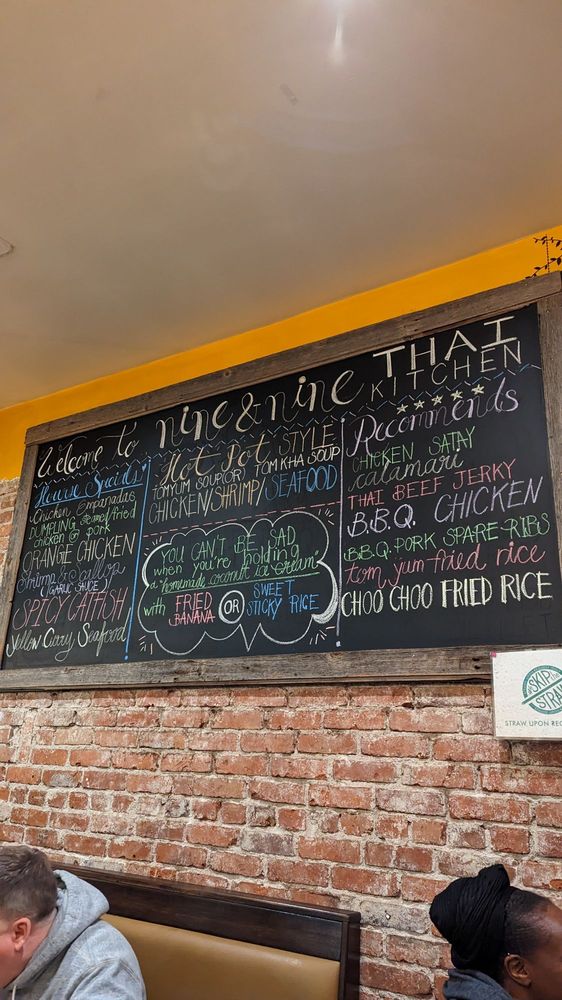 Welcome to nine & nine THAI
KITCHEN
House Specials
Chicken Empanadas
DUMPLING steamed/fried
chicken or pork
ORANGE CHICKEN
Shrimp & Scallop
(GARLIC SAUCE)
SPICY CATFISH
Yellow Curry Seafood
Hot Pot STYLE
TOMYUM SOUP (OR) TOM KHA SOUP
CHICKEN/SHRIMP/SEAFOOD
YOU CAN'T BE SAD
when you're holding
a "homemade coconut ice cream"
with FRIED BANANA OR SWEET STICKY RICE
Recommends
CHICKEN SATAY
calamari
THAI BEEF JERKY
B.B.Q. CHICKEN
B.B.Q. PORK SPARE-RIBS
tom yum fried rice
CHOO CHOO FRIED RICE
SKIP the
STRAW
STRAW UPON